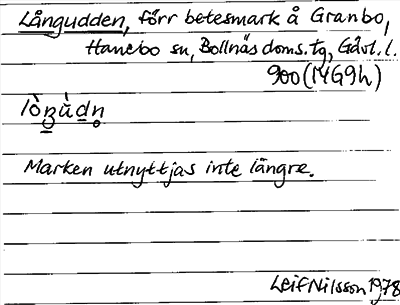 Långudden, förr betesmark å Granbo,
Hanebo sn, Bollnäs doms. tg, Gävl. l.
900 (14G9h)
lòn̲ùd̲n̥
Marken utnyttjas inte längre.
Leif Nilsson 1978